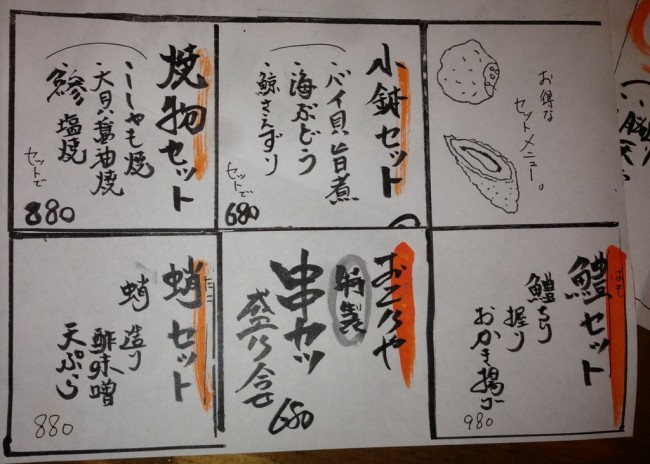 お得な
セットメニュー。
小鉢セット
・バイ貝旨煮
・海ぶどう
・鯨さえずり
セットで
680
焼物セット
・ししゃも焼
・大貝醤油焼
・鰺塩焼
セットで
880
鱧セット
鱧ちり
握り
おかき揚げ
980
特製
串カツ
盛り合せ
680
たこ
蛸セット
蛸
造り
酢味噌
天ぷら
880